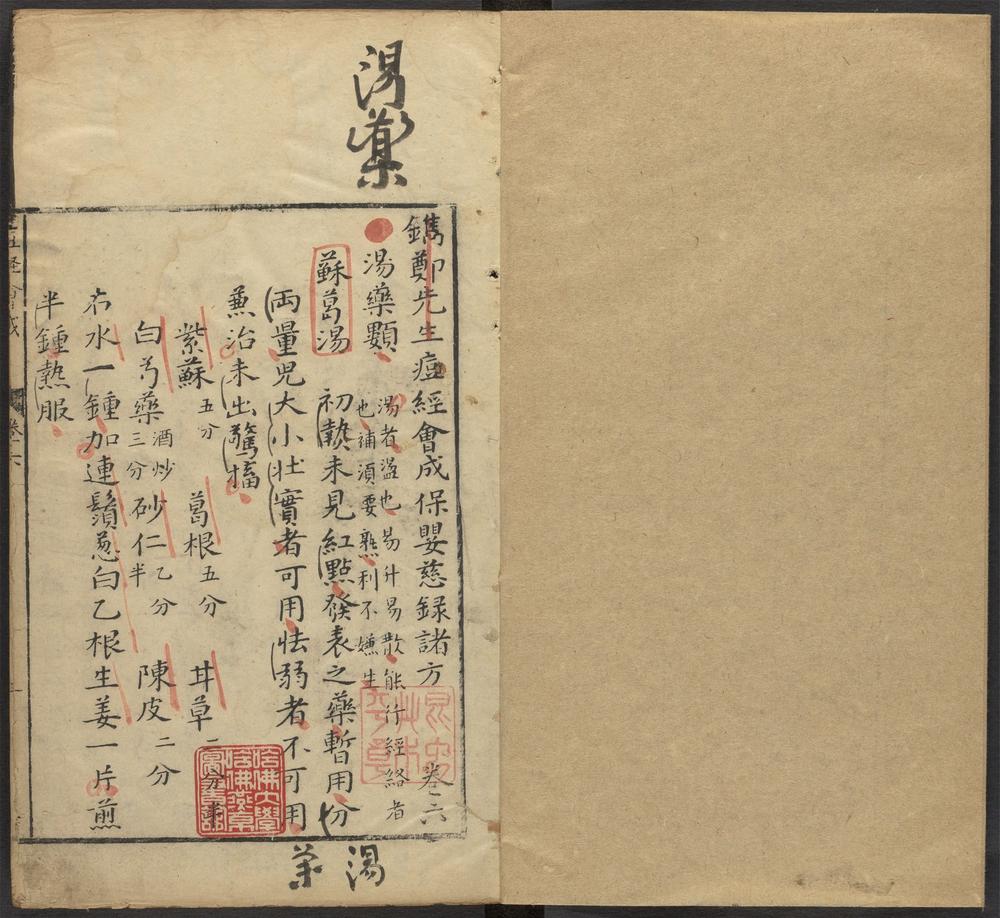 湯藥
鐫鄭先生痘經會成保嬰慈録諸方 卷六
湯藥顆
湯者溫也易升易散能行經絡者
也補湏要熟利不嫌生
蘇葛湯
初𤍠未見紅點發表之藥暫用分
両量兒大小壮實者可用怯弱者不可用
兼治未出驚搐
紫蘇五分 葛根五分 甘草二分半
白芍藥酒炒三分 砂仁乙分半 陳皮二分
右水一鍾加連鬚葱白乙根生姜一片煎
半鍾熱服
卷六
湯
藥
哈佛大學哈佛燕京圖書館